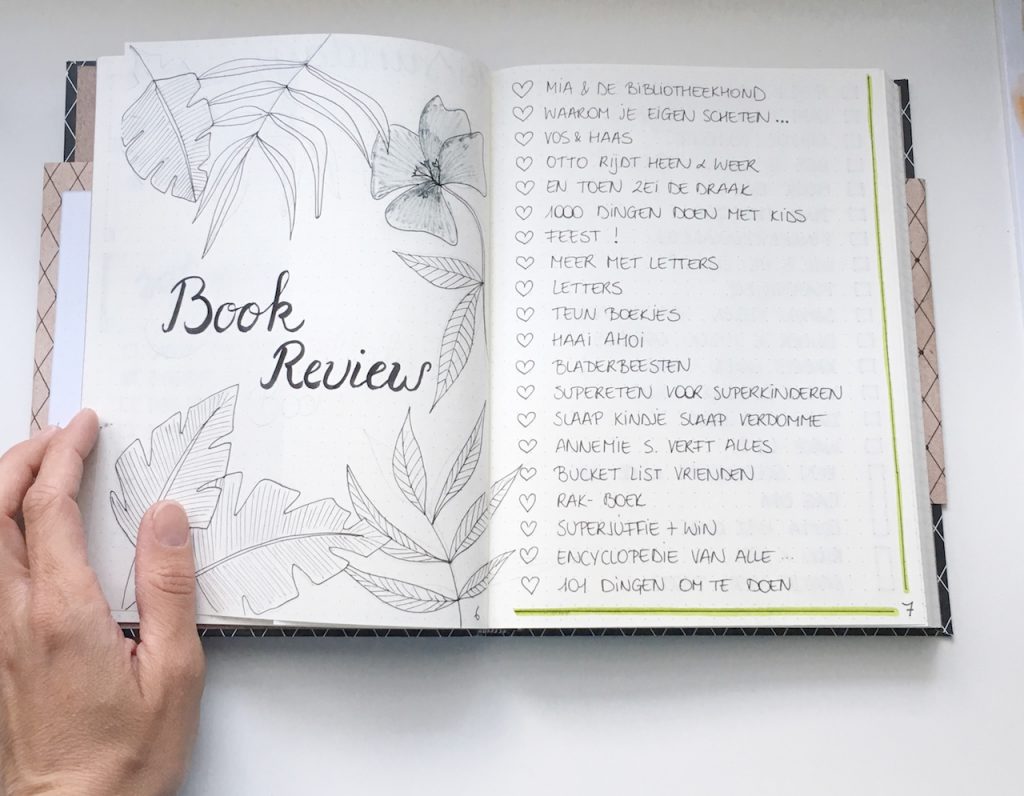 Book
Review
6
MIA & DE BIBLIOTHEEKHOND
WAAROM JE EIGEN SCHETEN...
VOS & HAAS
OTTO RIJDT HEEN & WEER
EN TOEN ZEI DE DRAAK
1000 DINGEN DOEN MET KIDS
FEEST !
MEER MET LETTERS
LETTERS
TEUN BOEKJES
HAAI AHOI
BLADERBEESTEN
SUPERETEN VOOR SUPERKINDEREN
SLAAP KINDJE SLAAP VERDOMME
ANNEMIE S. VERFT ALLES
BUCKET LIST VRIENDEN
RAK- BOEK
SUPERJUFFIE + WIN
ENCYCLOPEDIE VAN ALLE ...
101 DINGEN OM TE DOEN
7